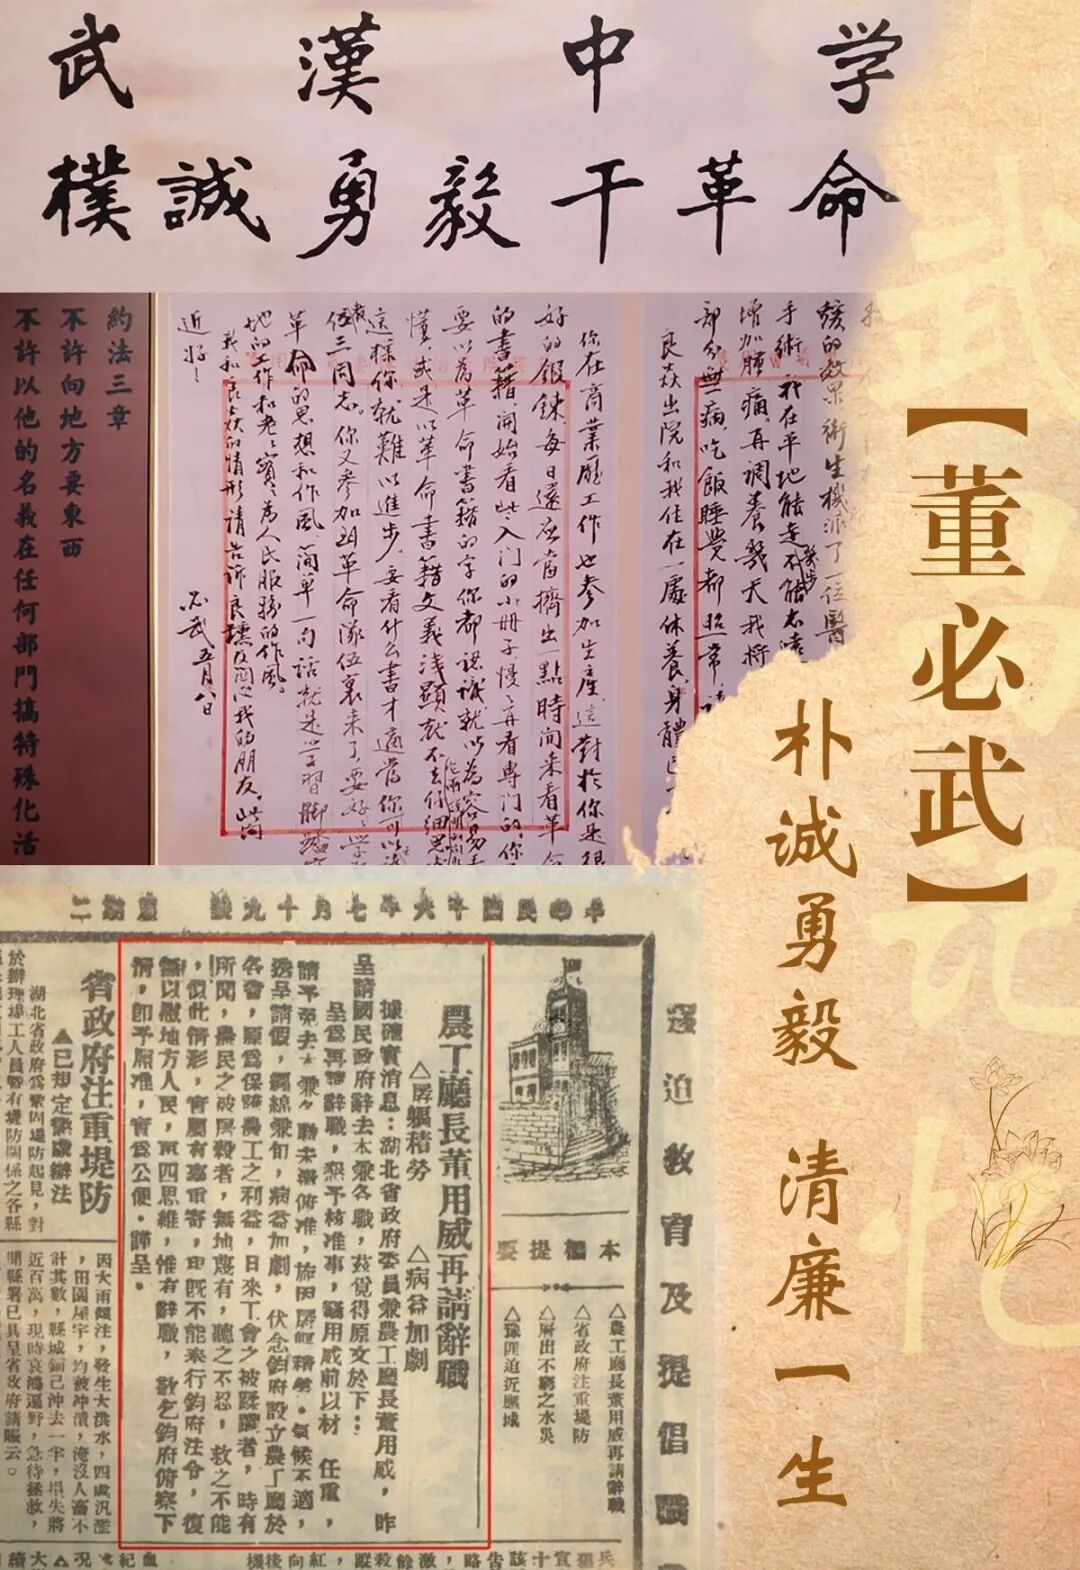 武漢中学
樸誠勇毅干革命
【董必武】
朴诚勇毅 清廉一生
約法三章
不許向地方要東西
不許以他的名義在任何部門搞特殊化活
手術，我在平地能走，不能去
增加腰痛，再調養幾天我將
部分無病，吃飯睡覺都照常，
良焱出院和我住在一處休養，身體
你在商業廳工作也参加生産，這對於你是很
好的鍛鍊，每日還应當擠出一點時間来看革命
的書籍，開始看些入门的小册子，慢慢再看專门的，你
要以為革命書籍的字你都認識就以為容易
懂，或是以革命書籍文義淺顯就不去仔細思
這樣你就難以進步，要看什么書才適當，你可以
伍三同志。你又参加到革命隊伍裏来了，要好好學
革命的思想和作風，简單一句話就是学習脚踏
地的工作和老老實實為人民服務的作風。
我和良焱的情形請告訴良壎及関心我的朋友。此问
近好！
必武 五月八日
中華民國十六年七月十九號 星期二
本欄提要
△農工廳長董用威再請辭職
△省政府注重堤防
△層出不窮之水災
△豫匪迫近應城
農工廳長董用威再請辭職
△孱軀積勞 △病益加劇
據確實消息：湖北省政府委員兼農工廳長董用威，昨
呈請國民政府辭去本兼各職，茲覓得原文於下：
呈爲再請辭職，懇予核准事，竊用威前以材 任重，
請予免去本兼各職未蒙俯准，旋因孱軀積勞，氣候不適，
遂呈請假，纏綿兼旬，病益加劇，伏念鈞府設立農工廳於
各省，原爲保障農工之利益，日來工會之被蹂躪者，時有
所聞，農民之被屠殺者，無地蔑有，聽之不忍，救之不能
，似此情形，實屬有忝重寄，申旣不能奉行鈞府法令，復
無以慰地方人民，再四思維，惟有辭職，敬乞鈞府俯察下
情，卽予照准，實爲公便，謹呈。
省政府注重堤防
△已規定懲獎辦法
湖北省政府爲鞏固堤防起見，對
於辦理埠工人員暨有堤防關係之各縣
因大雨傾注，發生大洪水，四處汎濫
，田園屋宇，均被冲潰，淹沒人畜不
計其數，縣城鋪已冲去一半，損失將
近百萬，現時哀鴻遍野，急待拯救，
聞縣署已具呈省政府請賑云。